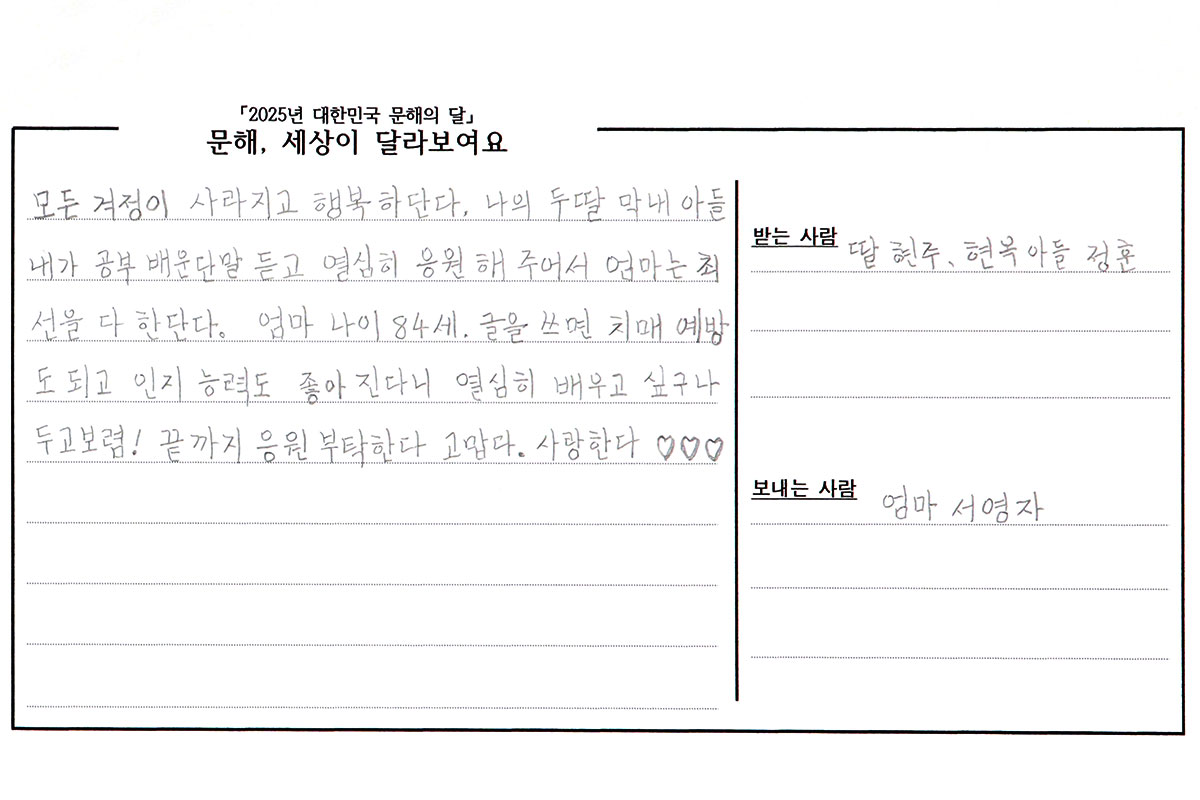 「2025년 대한민국 문해의 달」
문해, 세상이 달라보여요
모든 걱정이 사라지고 행복하단다. 나의 두딸 막내 아들
내가 공부 배운단말 듣고 열심히 응원 해 주어서 엄마는 최
선을 다 한단다. 엄마 나이 84세. 글을 쓰면 치매 예방
도 되고 인지 능력도 좋아 진다니 열심히 배우고 싶구나
두고보렴! 끝까지 응원 부탁한다 고맙다. 사랑한다 ♡♡♡
받는 사람 딸 현주、현옥 아들 정훈
보내는 사람 엄마 서영자